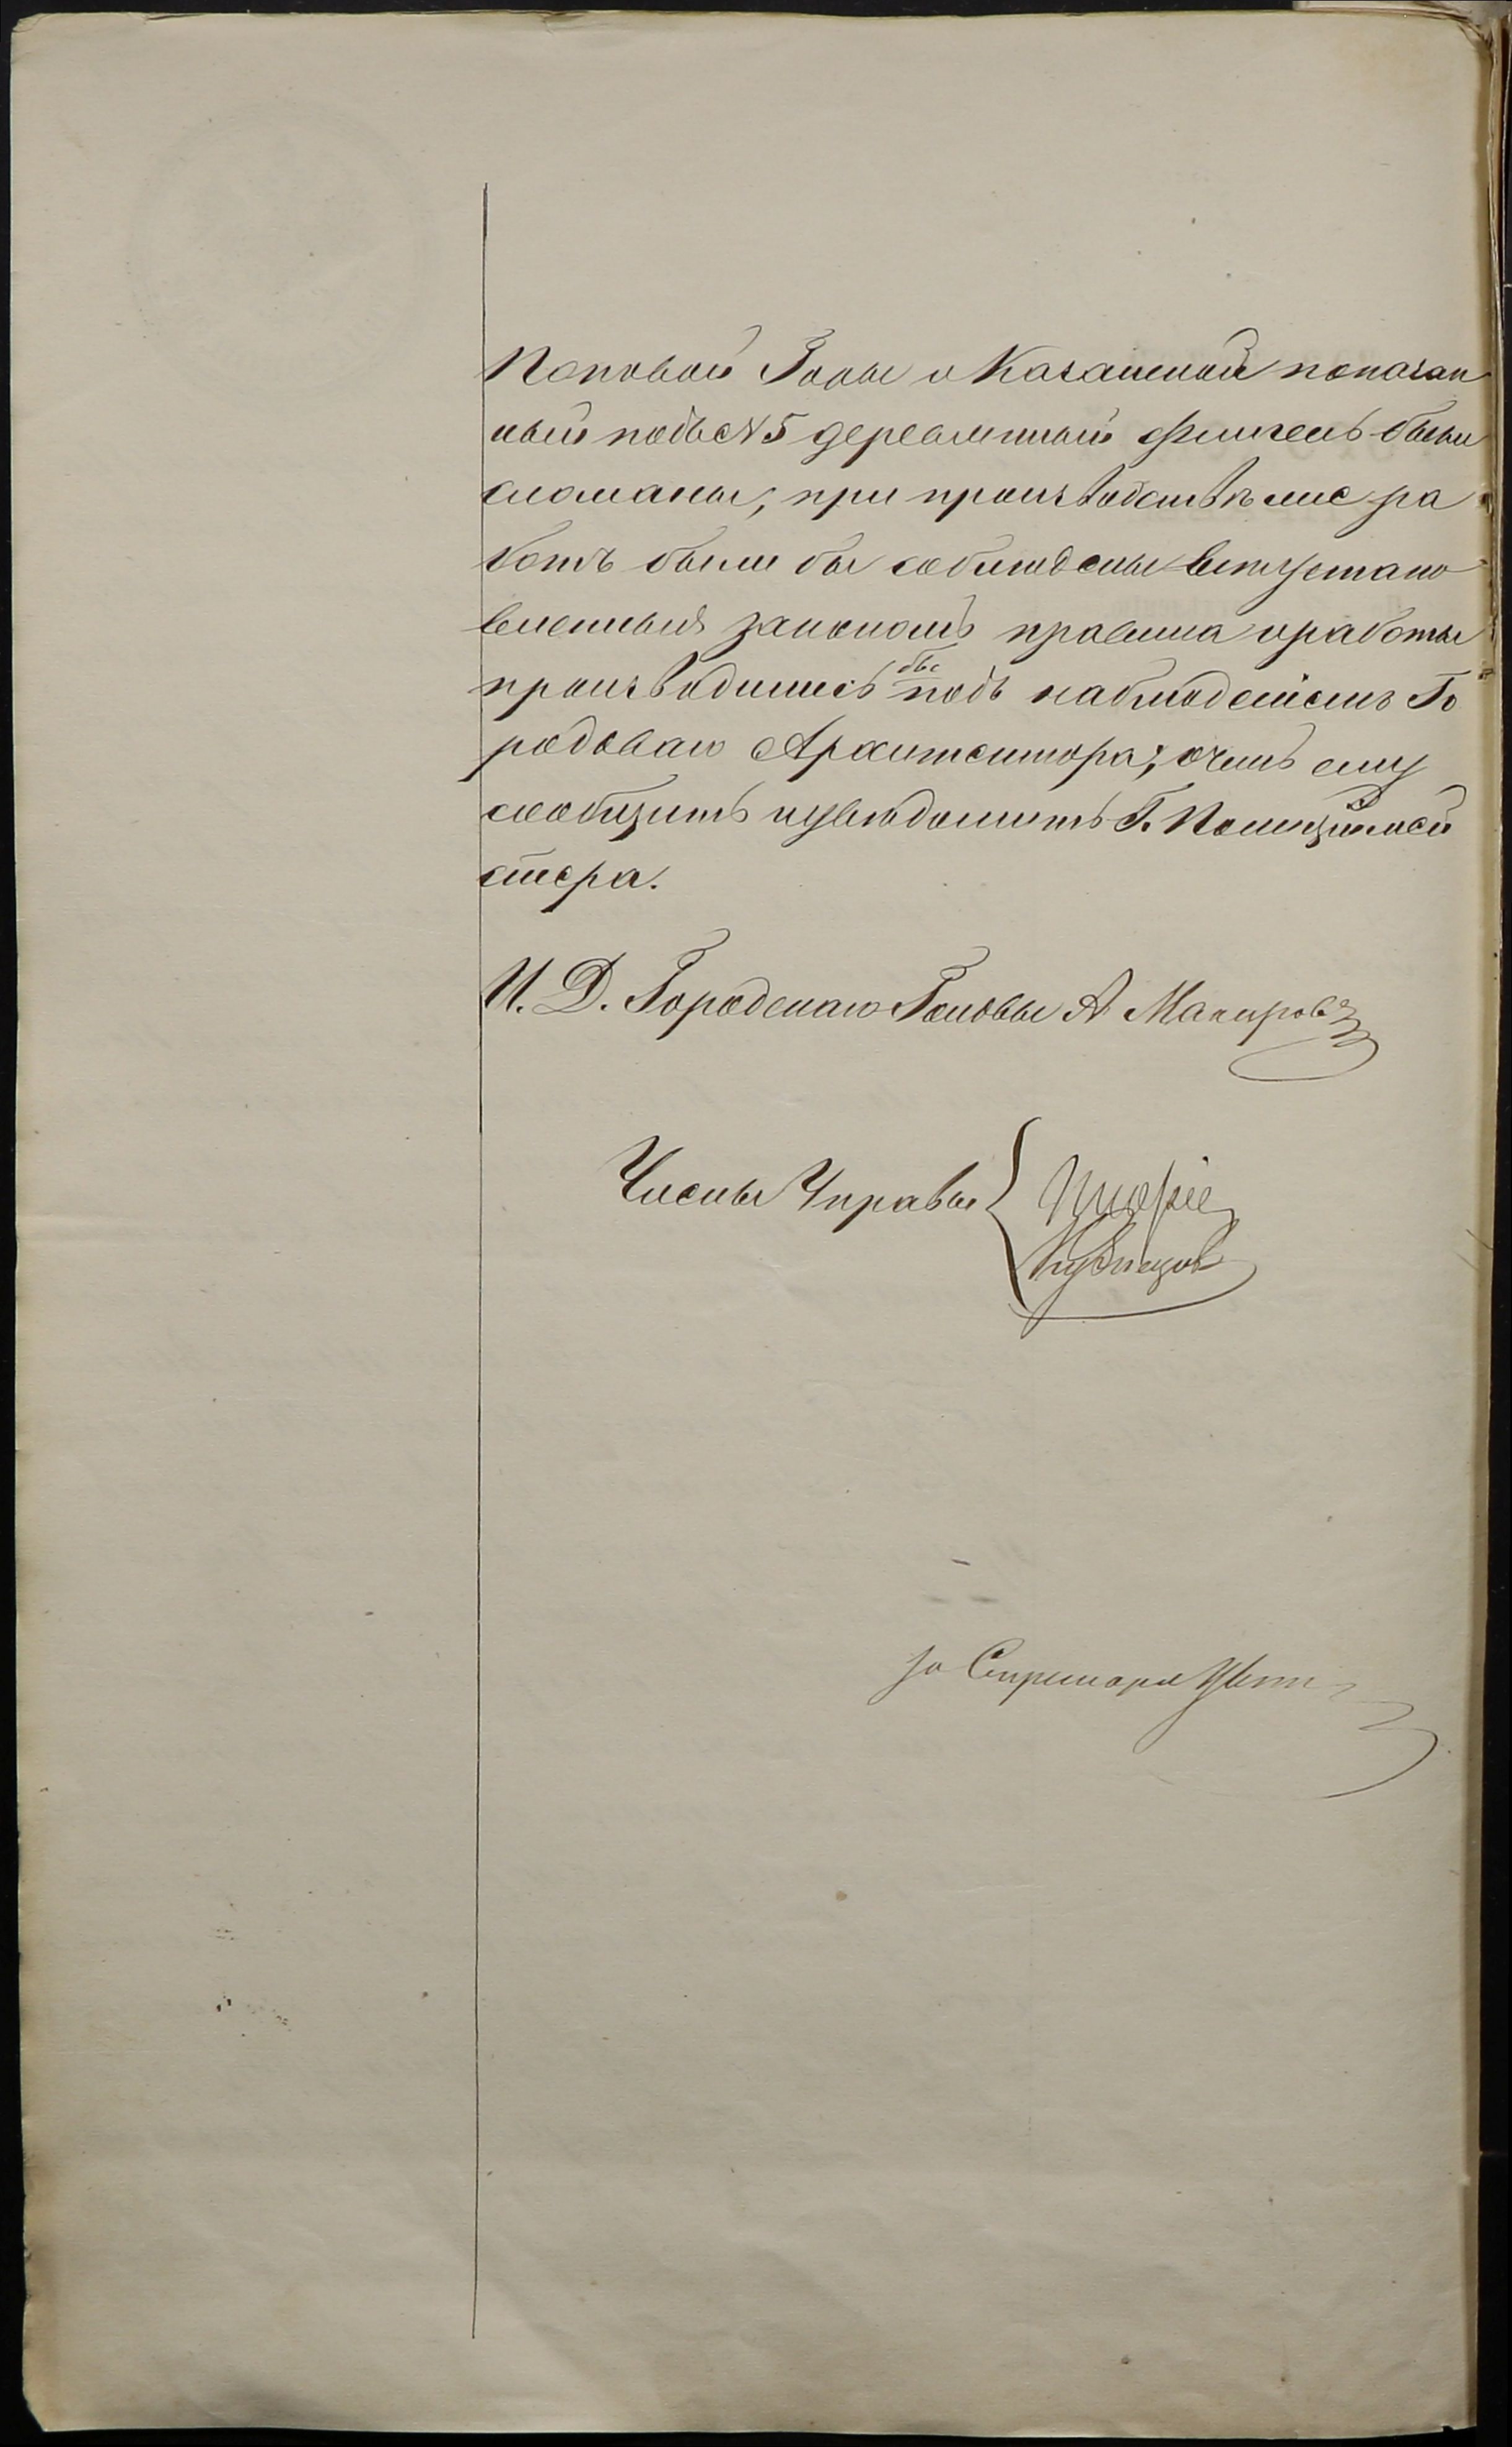 Поповой Горы и Казанской показан
ный подъ № 5 деревянный флигель были
сломаны; при производствѣ же ра
ботъ были бы соблюдены всѣ устано
вленныя закономъ правила и работы
производились бы подъ наблюденіемъ Го
родоваго Архитектора; о чемъ ему
сообщить и увѣдомить Г. Полиціймей
стера.
И. Д. Городскаго Головы А. Макаровъ
Члены Управы
Кузнецовъ
За Секретаря